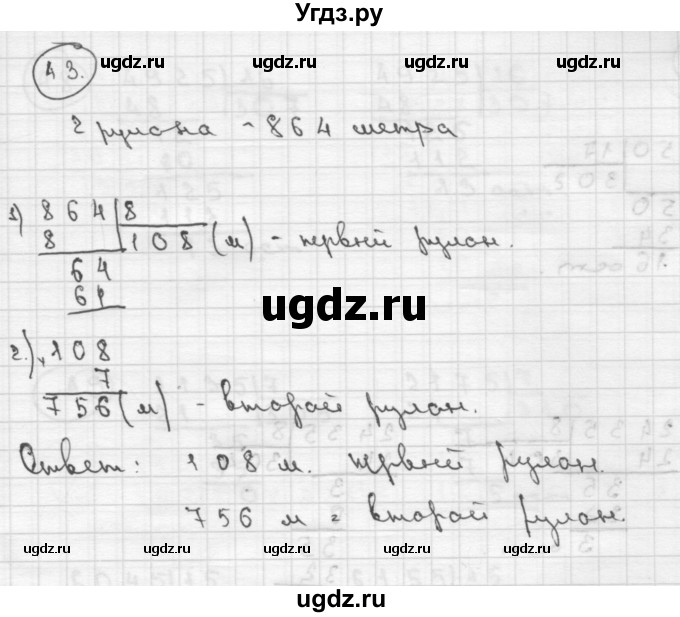 Угдз.ру
43.
ugdz.ru ugdz.ru ugdz.ru
2 рулона - 864 метра
1) 864 | 8
8 108 (м) - первый рулон.
64
64
ugdz.ru
2.) × 108
7
756 (м) - второй рулон.
Ответ: 108 м. первый рулон.
756 м - второй рулон.
ugdz.ru ugdz.ru ugdz.ru ugdz.ru ugdz.ru
ugdz.ru